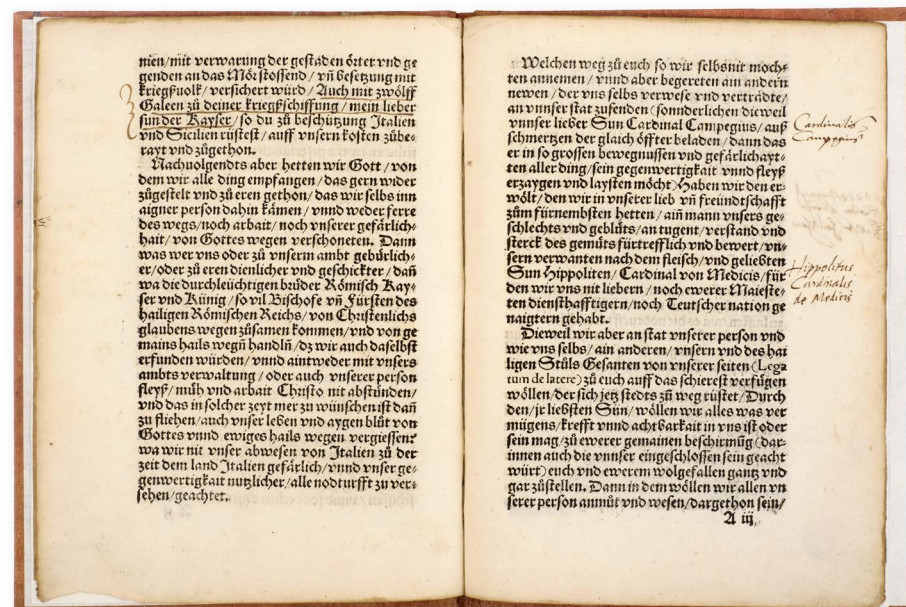 nien/mit verwarung der gestaden örter vnd ge
genden an das Mör stossend/ vñ besetzung mit
kriegßuolk/ versichert würd/ Auch mit zwölff
Galeen zů deiner kriegßschiffung/ mein lieber
sun der Kayser/ so du zů beschützung Italien
vnd Sicilien rüstest/ auff vnsern kosten zůbe-
rayt vnd zůgethon.
Nachuolgendts aber hetten wir Gott/ von
dem wir alle ding empfangen/ das gern wider
zůgestelt vnd zů eren gethon/ das wir selbs inn
aigner person dahin kämen/ vnnd weder ferre
des wegs/ noch arbait/ noch vnserer gefärlich-
hait/ von Gottes wegen verschoneten. Dann
was wer vns oder zů vnserm ambt gebürlich-
er/ oder zů eren dienlicher vnd geschickter/ dañ
wa die durchleüchtigen brüder Römisch Kay-
ser vnd Künig/ so vil Bischofe vñ Fürsten des
hailigen Römischen Reichs/ von Christenlichs
glaubens wegen zůsamen kommen/ vnd von ge
mains hails wegñ handlñ/ dz wir auch daselbst
erfunden würden/ vnnd aintweder mit vnsers
ambts verwaltung/ oder auch vnserer person
fleyß/ müh vnd arbait Christo nit abstünden/
vnd das in solcher zeyt mer zů wünschen ist dañ
zů fliehen/ auch vnser leben vnd aygen blůt von
Gottes vnnd ewiges hails wegen vergiessen?
wa wir nit vnser abwesen von Italien zů der
zeit dem land Italien gefärlich/ vnnd vnser ge-
genwertigkait nutzlicher/ alle nodturfft zů ver-
sehen/ geachtet.
Welchen weg zů euch so wir selbs nit moch-
ten annemen/ vnnd aber begereten ain andern
newen/ der vns selbs verwese vnd verträdte/
an vnnser stat zusenden (sonnderlichen dieweil
vnnser lieber Sun Cardinal Campegius/ auß
schmertzen der glaich öffter beladen/ dann das
er in so grossen bewegnussen vnd gefärlichayt-
ten aller ding/ sein gegenwertigkait vnnd fleyß
erzaygen vnd laysten möcht) Haben wir den er-
wölt/ den wir in vnserer lieb vñ freundtschafft
zům fürnembsten hetten/ aiñ mann vnsers ge-
schlechts vnd geblüts/ an tugent/ verstand vnd
sterck des gemüts fürtrefflich vnd bewert/ vn-
sern verwanten nach dem fleisch/ vnd geliebten
Sun Hippoliten/ Cardinal von Medicis/ für
den wir vns nit liebern/ noch ewerer Maieste-
ten diensthafftigern/ noch Teutscher nation ge
naigtern gehabt.
Dieweil wir aber an stat vnserer person vnd
wie vns selbs/ ain anderen/ vnsern vnd des hai
ligen Stůls Gesanten von vnserer seiten (Lega
tum de latere) zů euch auff das schierest verfügen
wöllen/ der sich jetz stedts zů weg rüstet/ Durch
den/ jr liebsten Sün/ wöllen wir alles was ver
mügens/ krefft vnnd achtbarkait in vns ist oder
sein mag/ zů ewerer gemainen beschirmůg (dar-
innen auch die vnnser eingeschlossen sein geacht
würt) euch vnd ewerem wolgefallen gantz vnd
gar zůstellen. Dann in dem wöllen wir allen vn
serer person anmůt vnd wesen/ dargethon sein/
A iij
Cardinalis
Campegius
Hippolitus
Cardinalis
de Medicis